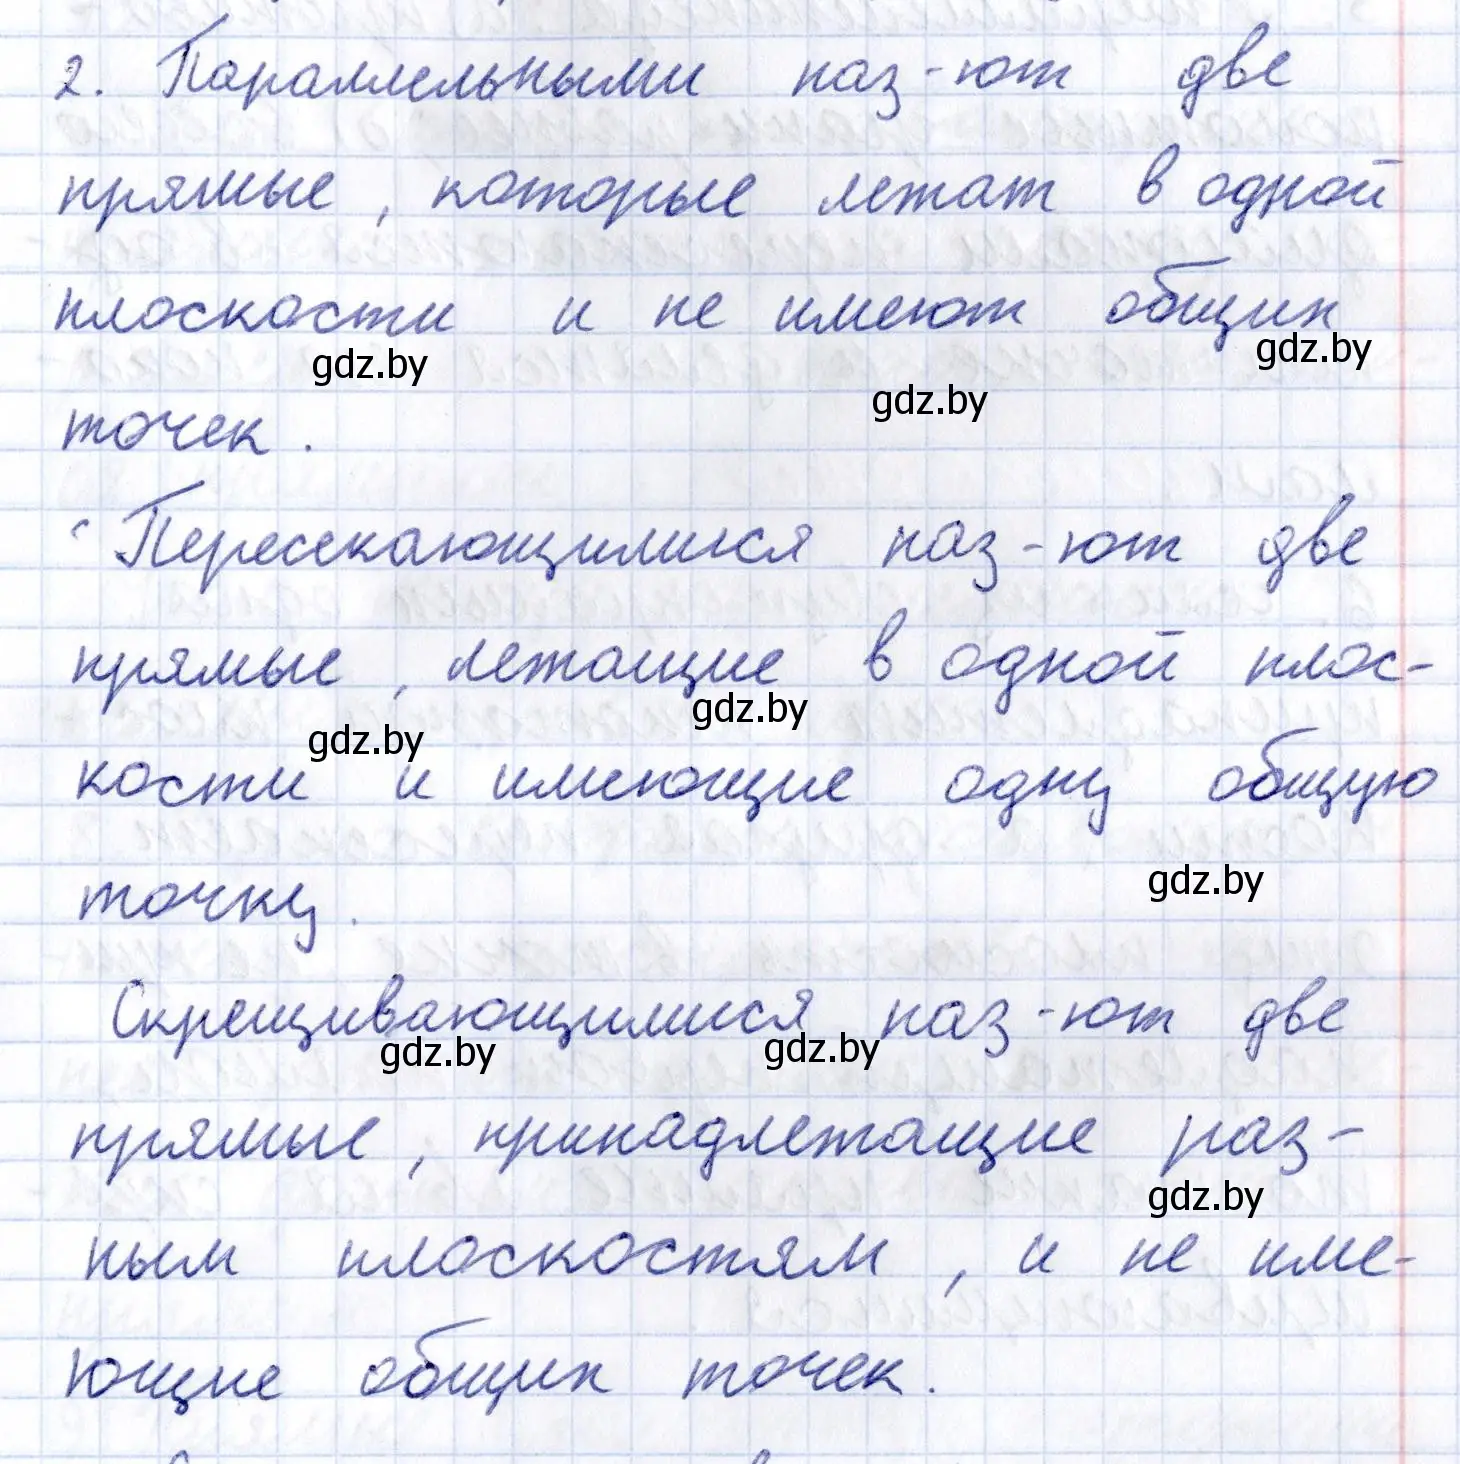 2. Параллельными наз-ют две
прямые, которые лежат в одной
плоскости и не имеют общих
gdz.by
gdz.by
gdz.by
точек.
Пересекающимися наз-ют две
прямые, лежащие в одной плос-
gdz.by
gdz.by
кости и имеющие одну общую
gdz.by
точку.
Скрещивающимися наз-ют две
gdz.by
gdz.by
прямые, принадлежащие раз-
gdz.by
ным плоскостям, и не име-
ющие общих точек.